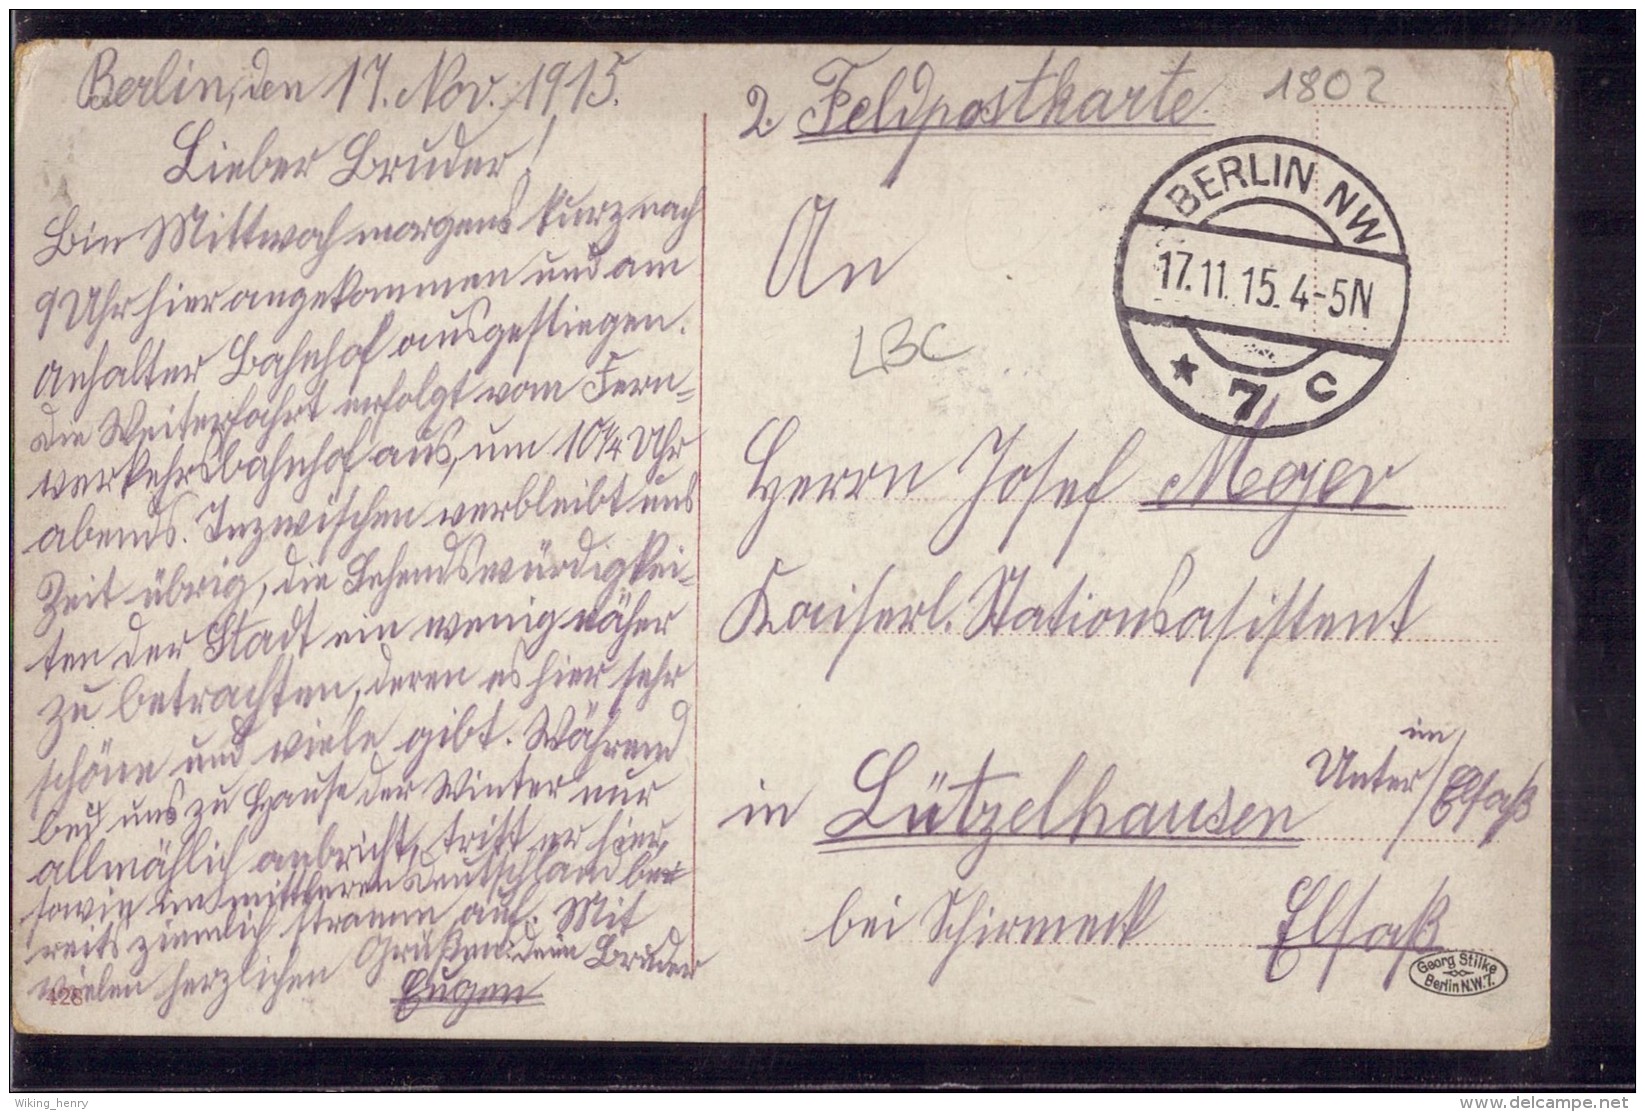 Berlin, den 17. Nov. 1915.
Lieber Bruder!
Bin Mittwoch morgens kurz nach
9 Uhr hier angekommen und am
Anhalter Bahnhof ausgestiegen.
Die Weiterfahrt erfolgt vom Fern-
verkehrsbahnhof aus, um 10 1/4 Uhr
abends. Inzwischen verbleibt uns
Zeit übrig, die Sehenswürdigkei-
ten der Stadt ein wenig näher
zu betrachten, deren es hier sehr
schöne und viele gibt. Während
bei uns zu Hause der Winter nur
allmählich anbricht, tritt er hier,
sowie im mittleren Deutschland be-
reits ziemlich stramm auf. Mit
vielen herzlichen Grüßen: dein Bruder
Eugen
428
2. Feldpostkarte
1802
BERLIN NW
17.11.15. 4-5N
* 7 c
An
LBC
Herrn Josef Meyer
Kaiserl. Stationsassistent
in Lützelhausen im Unter/Elsaß
bei Schirmeck Elsaß
Georg Stilke
Berlin N.W.7.
Wiking_henry
www.delcampe.net